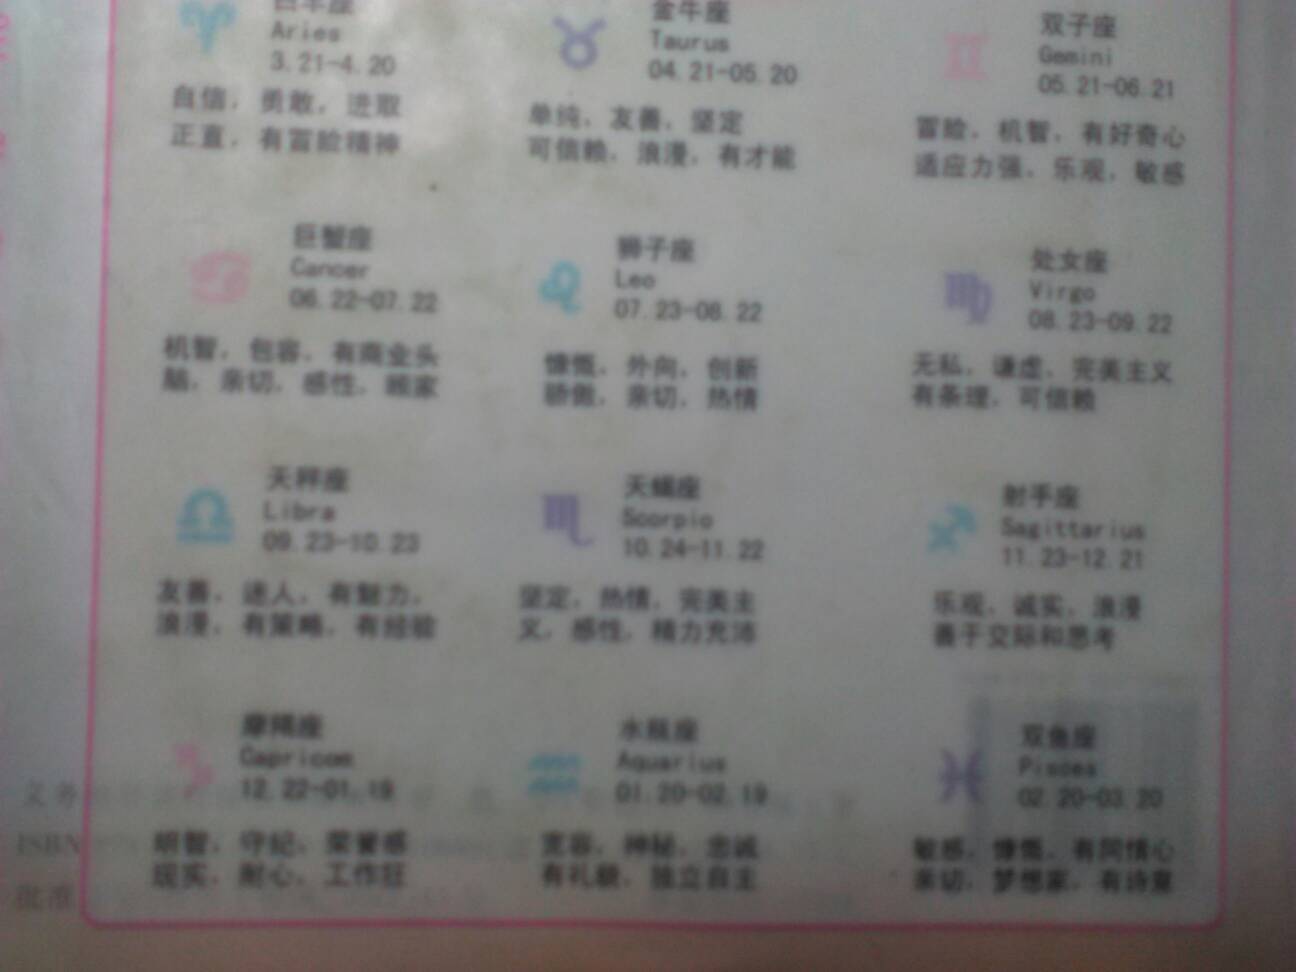 白羊座
Aries
3.21-4.20
自信，勇敢，进取
正直，有冒险精神
金牛座
Taurus
04.21-05.20
单纯，友善，坚定
可信赖，浪漫，有才能
双子座
Gemini
05.21-06.21
冒险，机智，有好奇心
适应力强，乐观，敏感
巨蟹座
Cancer
06.22-07.22
机智，包容，有商业头
脑，亲切，感性，顾家
狮子座
Leo
07.23-08.22
慷慨，外向，创新
骄傲，亲切，热情
处女座
Virgo
08.23-09.22
无私，谦虚，完美主义
有条理，可信赖
天秤座
Libra
09.23-10.23
友善，迷人，有魅力，
浪漫，有策略，有经验
天蝎座
Scorpio
10.24-11.22
坚定，热情，完美主
义，感性，精力充沛
射手座
Sagittarius
11.23-12.21
乐观，诚实，浪漫
善于交际和思考
摩羯座
Capricom
12.22-01.19
明智，守纪，荣誉感
现实，耐心，工作狂
水瓶座
Aquarius
01.20-02.19
宽容，神秘，忠诚
有礼貌，独立自主
双鱼座
Pisces
02.20-03.20
敏感，慷慨，有同情心
亲切，梦想家，有诗意
义务
ISBN
批准